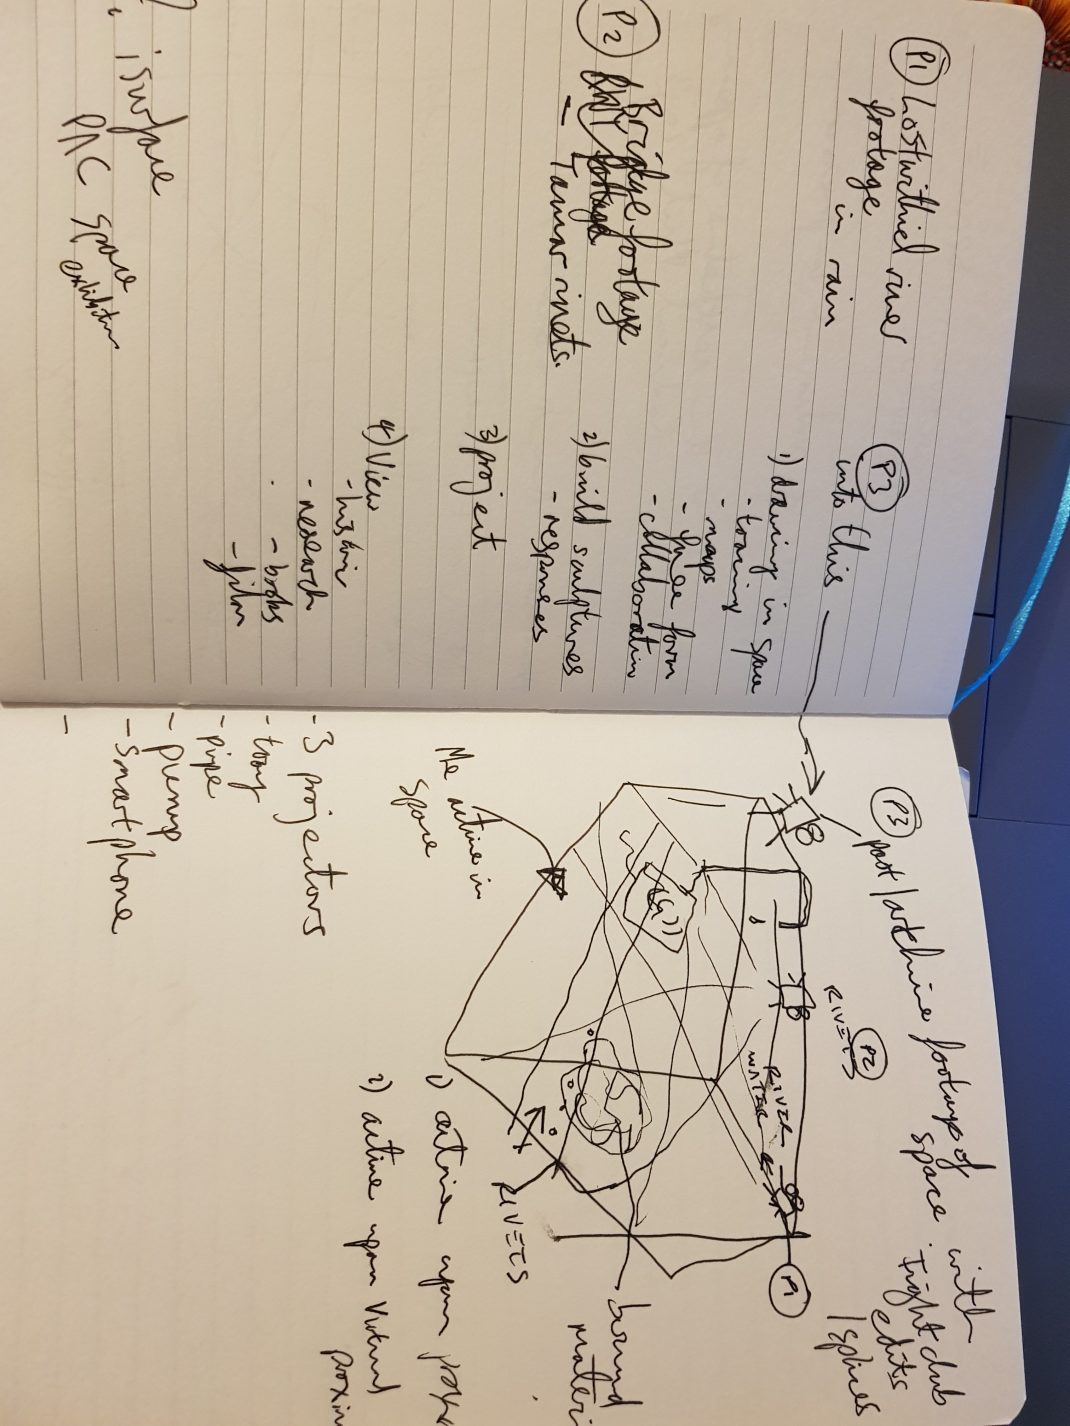 P1 Lostwithiel river
footage
in rain
P2 Bridge footage
- Tamar rivets.
isurface
PAC space
exhibition
P3
into this
1) drawing in space
- tracing
- maps
- free form
- collaboration
2) build sculptures
- responses
3) project
4) View
- research
- books
- film
P3 past/archive footage of
space with
Fight club
edits
/splices
P2
RIVETS
RIVER
WATER
P1
Me active in
space
RIVETS
bound
materi
1) active upon
2) active upon Virtual
proxim
- 3 projectors
- tray
- pipe
- pump
- smartphone
-